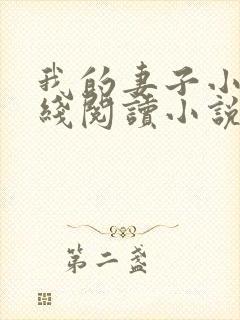 我的妻子小
綫閱讀小說
第二盞